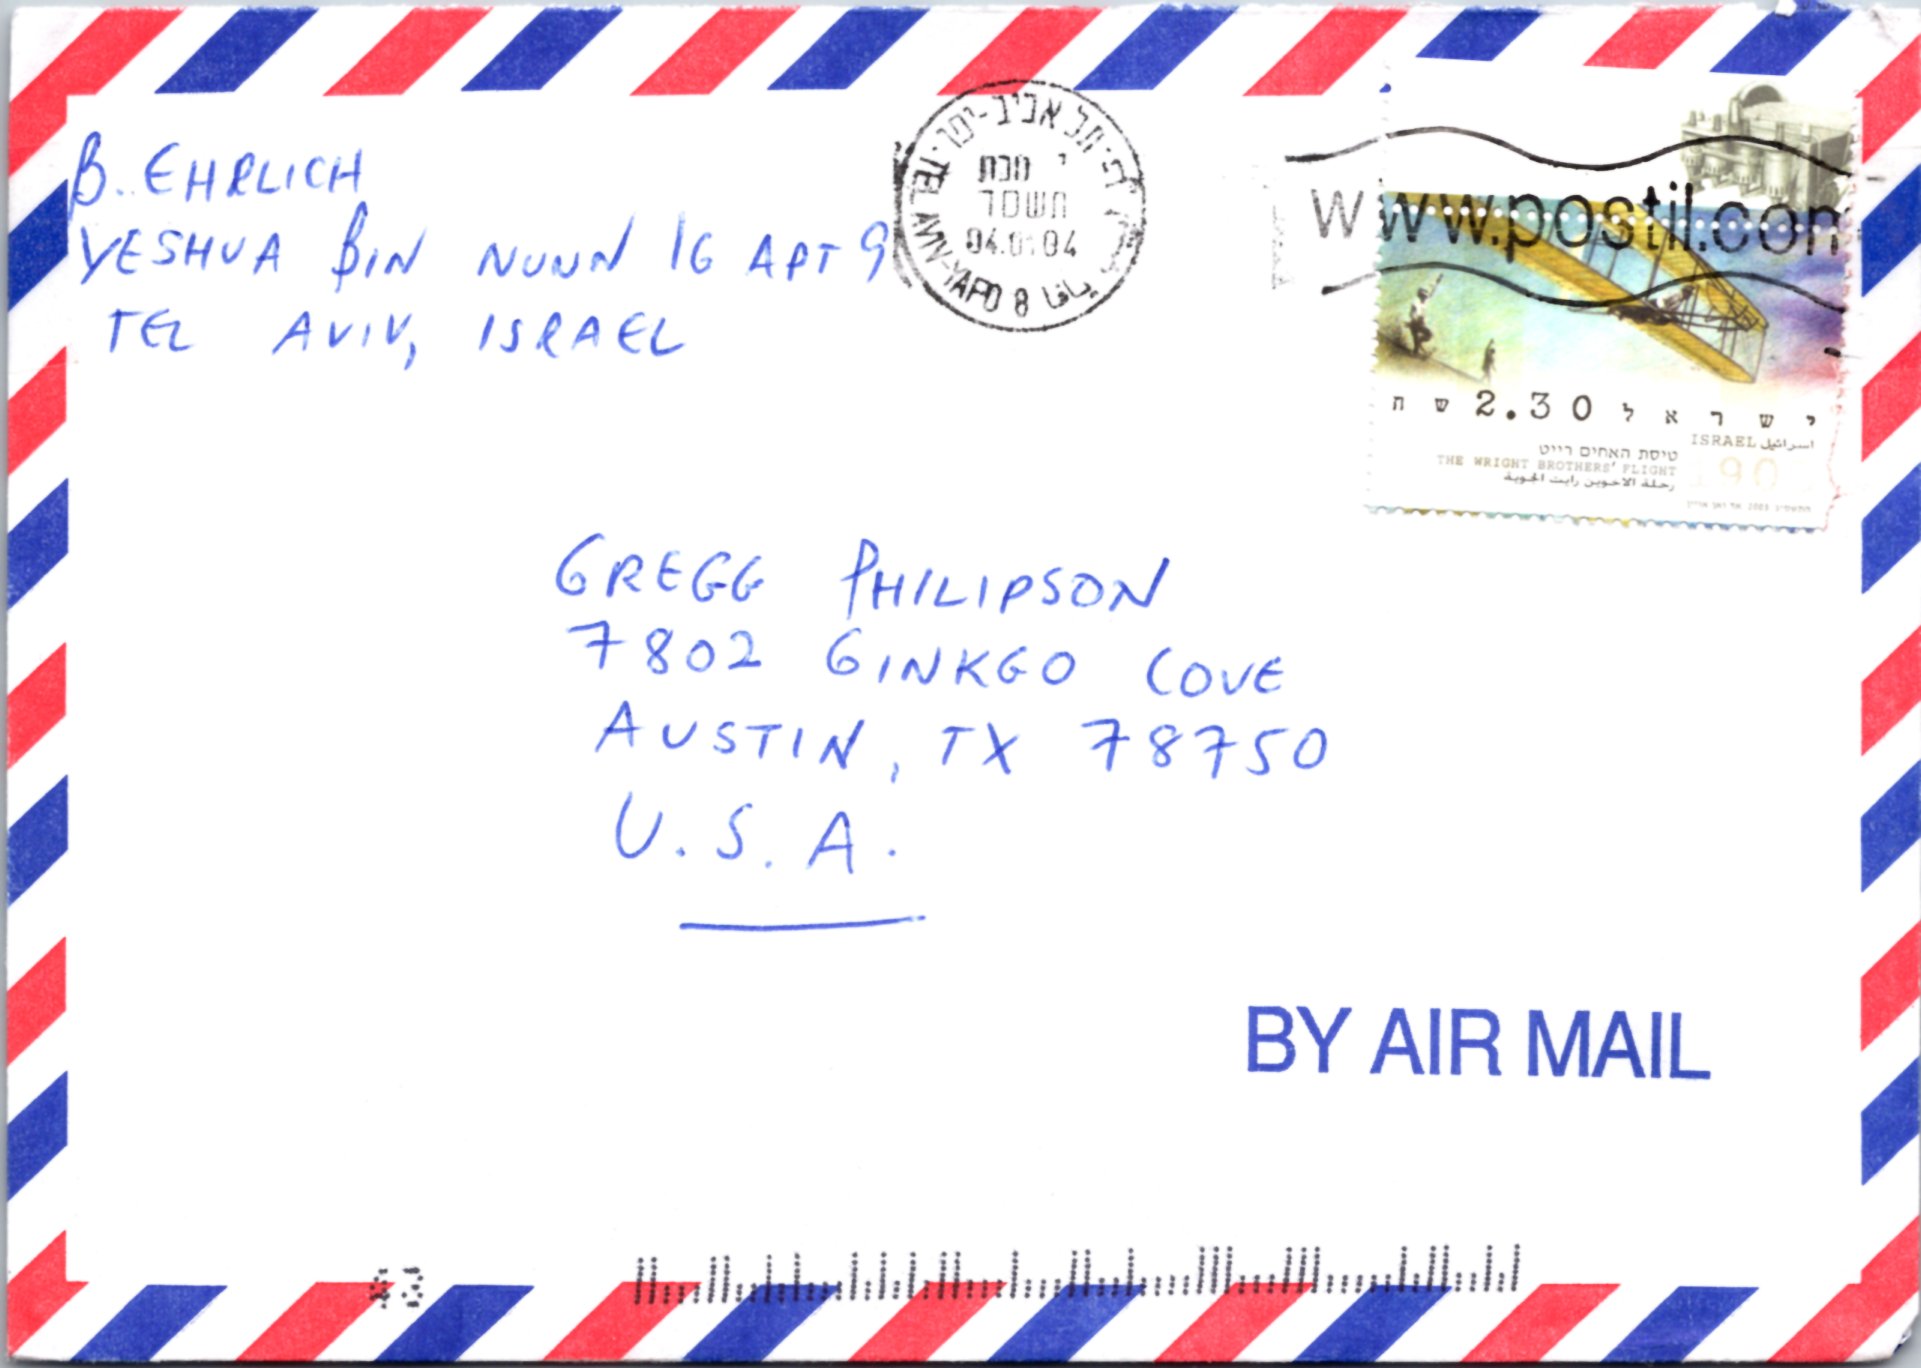 B. EHRLICH
YESHUA BIN NUNN 16 APT 9
TEL AVIV, ISRAEL
תל אביב-יפו
י טבת
תשסד
04.01.04
TEL AVIV-YAFO 8 يافا
www.postil.com
ישראל 2.30 שח
ISRAEL اسرائيل
90
טיסת האחים רייט
THE WRIGHT BROTHERS' FLIGHT
رحلة الاخوين رايت الجوية
GREGG PHILIPSON
7802 GINKGO COVE
AUSTIN, TX 78750
U.S.A.
BY AIR MAIL